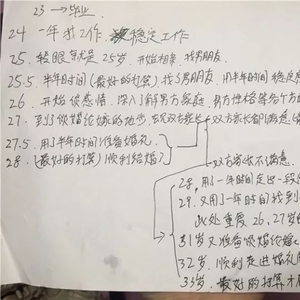 23 → 毕业
24 一年 找工作 稳定工作
25. 轻眼 就是25岁,开始相亲,找男朋友.
25.5 半年时间(最好的打算)找了男朋友,用半年时间稳定
26. 开始谈感情,深入了解男方家庭,男方性格等各个方
27. 到了谈婚论嫁的地步,
27.5. 用了半年时间准备婚礼.
28. (最好的打算)顺利结婚
双方家长不满意.
28. 用了一年时间走出一段
29. 又用了一年时间找到
此处重复26, 27岁
31岁 又准备谈婚论嫁
32岁. 顺利走进婚礼
33岁. 最好的打算